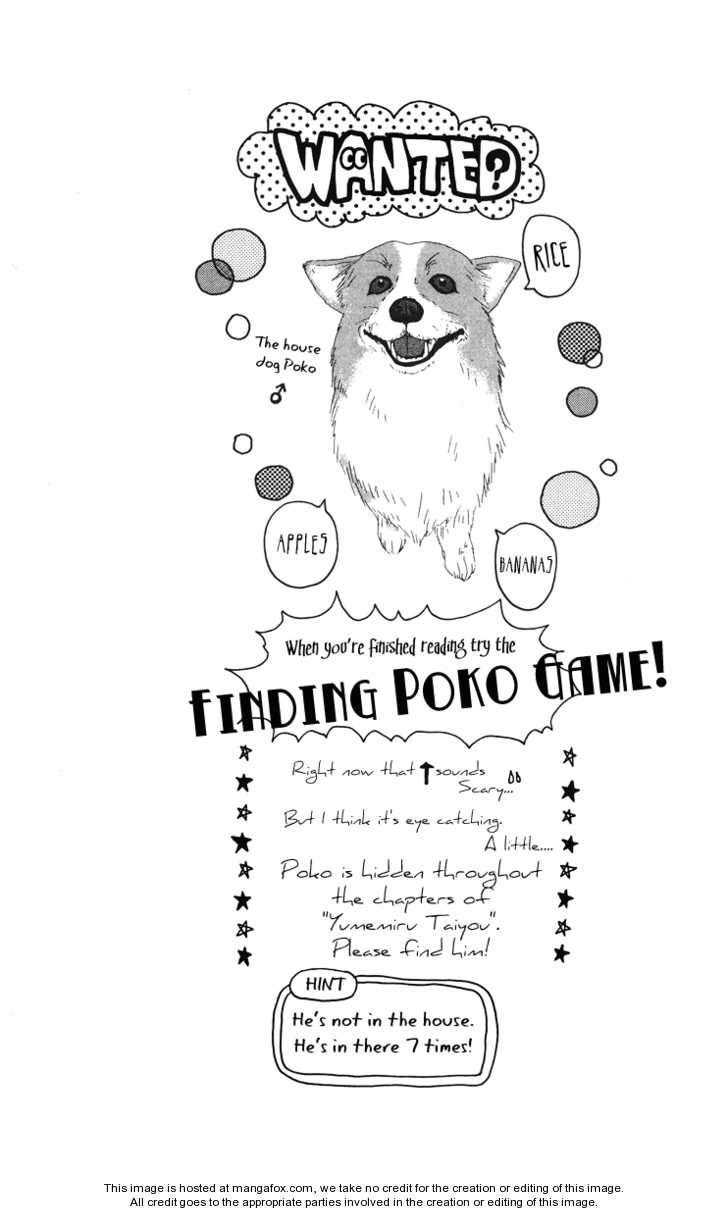 WANTED?
RICE
The house
dog Poko
♂
APPLES
BANANAS
When you're finished reading try the
FINDING POKO GAME!
Right now that ↑ sounds
Scary...
But I think it's eye catching.
A little....
Poko is hidden throughout
the chapters of
"Yumemiru Taiyou".
Please find him!
HINT
He's not in the house.
He's in there 7 times!
This image is hosted at mangafox.com, we take no credit for the creation or editing of this image.
All credit goes to the appropriate parties involved in the creation or editing of this image.